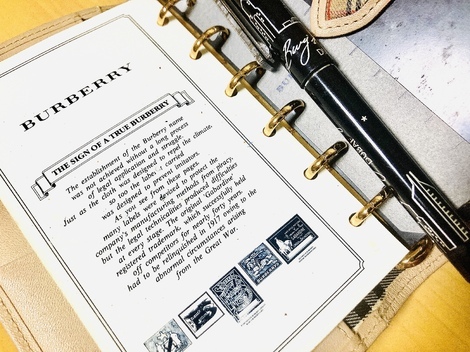 BURBERRY
THE SIGN OF A TRUE BURBERRY
The establishment of the Burberry name
was not achieved without a long process
of legal application and struggle.
Just as the cloth was designed to repel the climate,
so the labels it carried
was designed to prevent imitators.
As you see from these pages,
many labels were devised to protect the
company's manufacturing methods from piracy,
but the legal technicalities produced difficulties
at every stage. The original 'Gabardine'
registered trademark, which successfully held
off competitors for nearly forty years,
had to be relinquished in 1917 owing to the
abnormal circumstances arising
from the Great War.